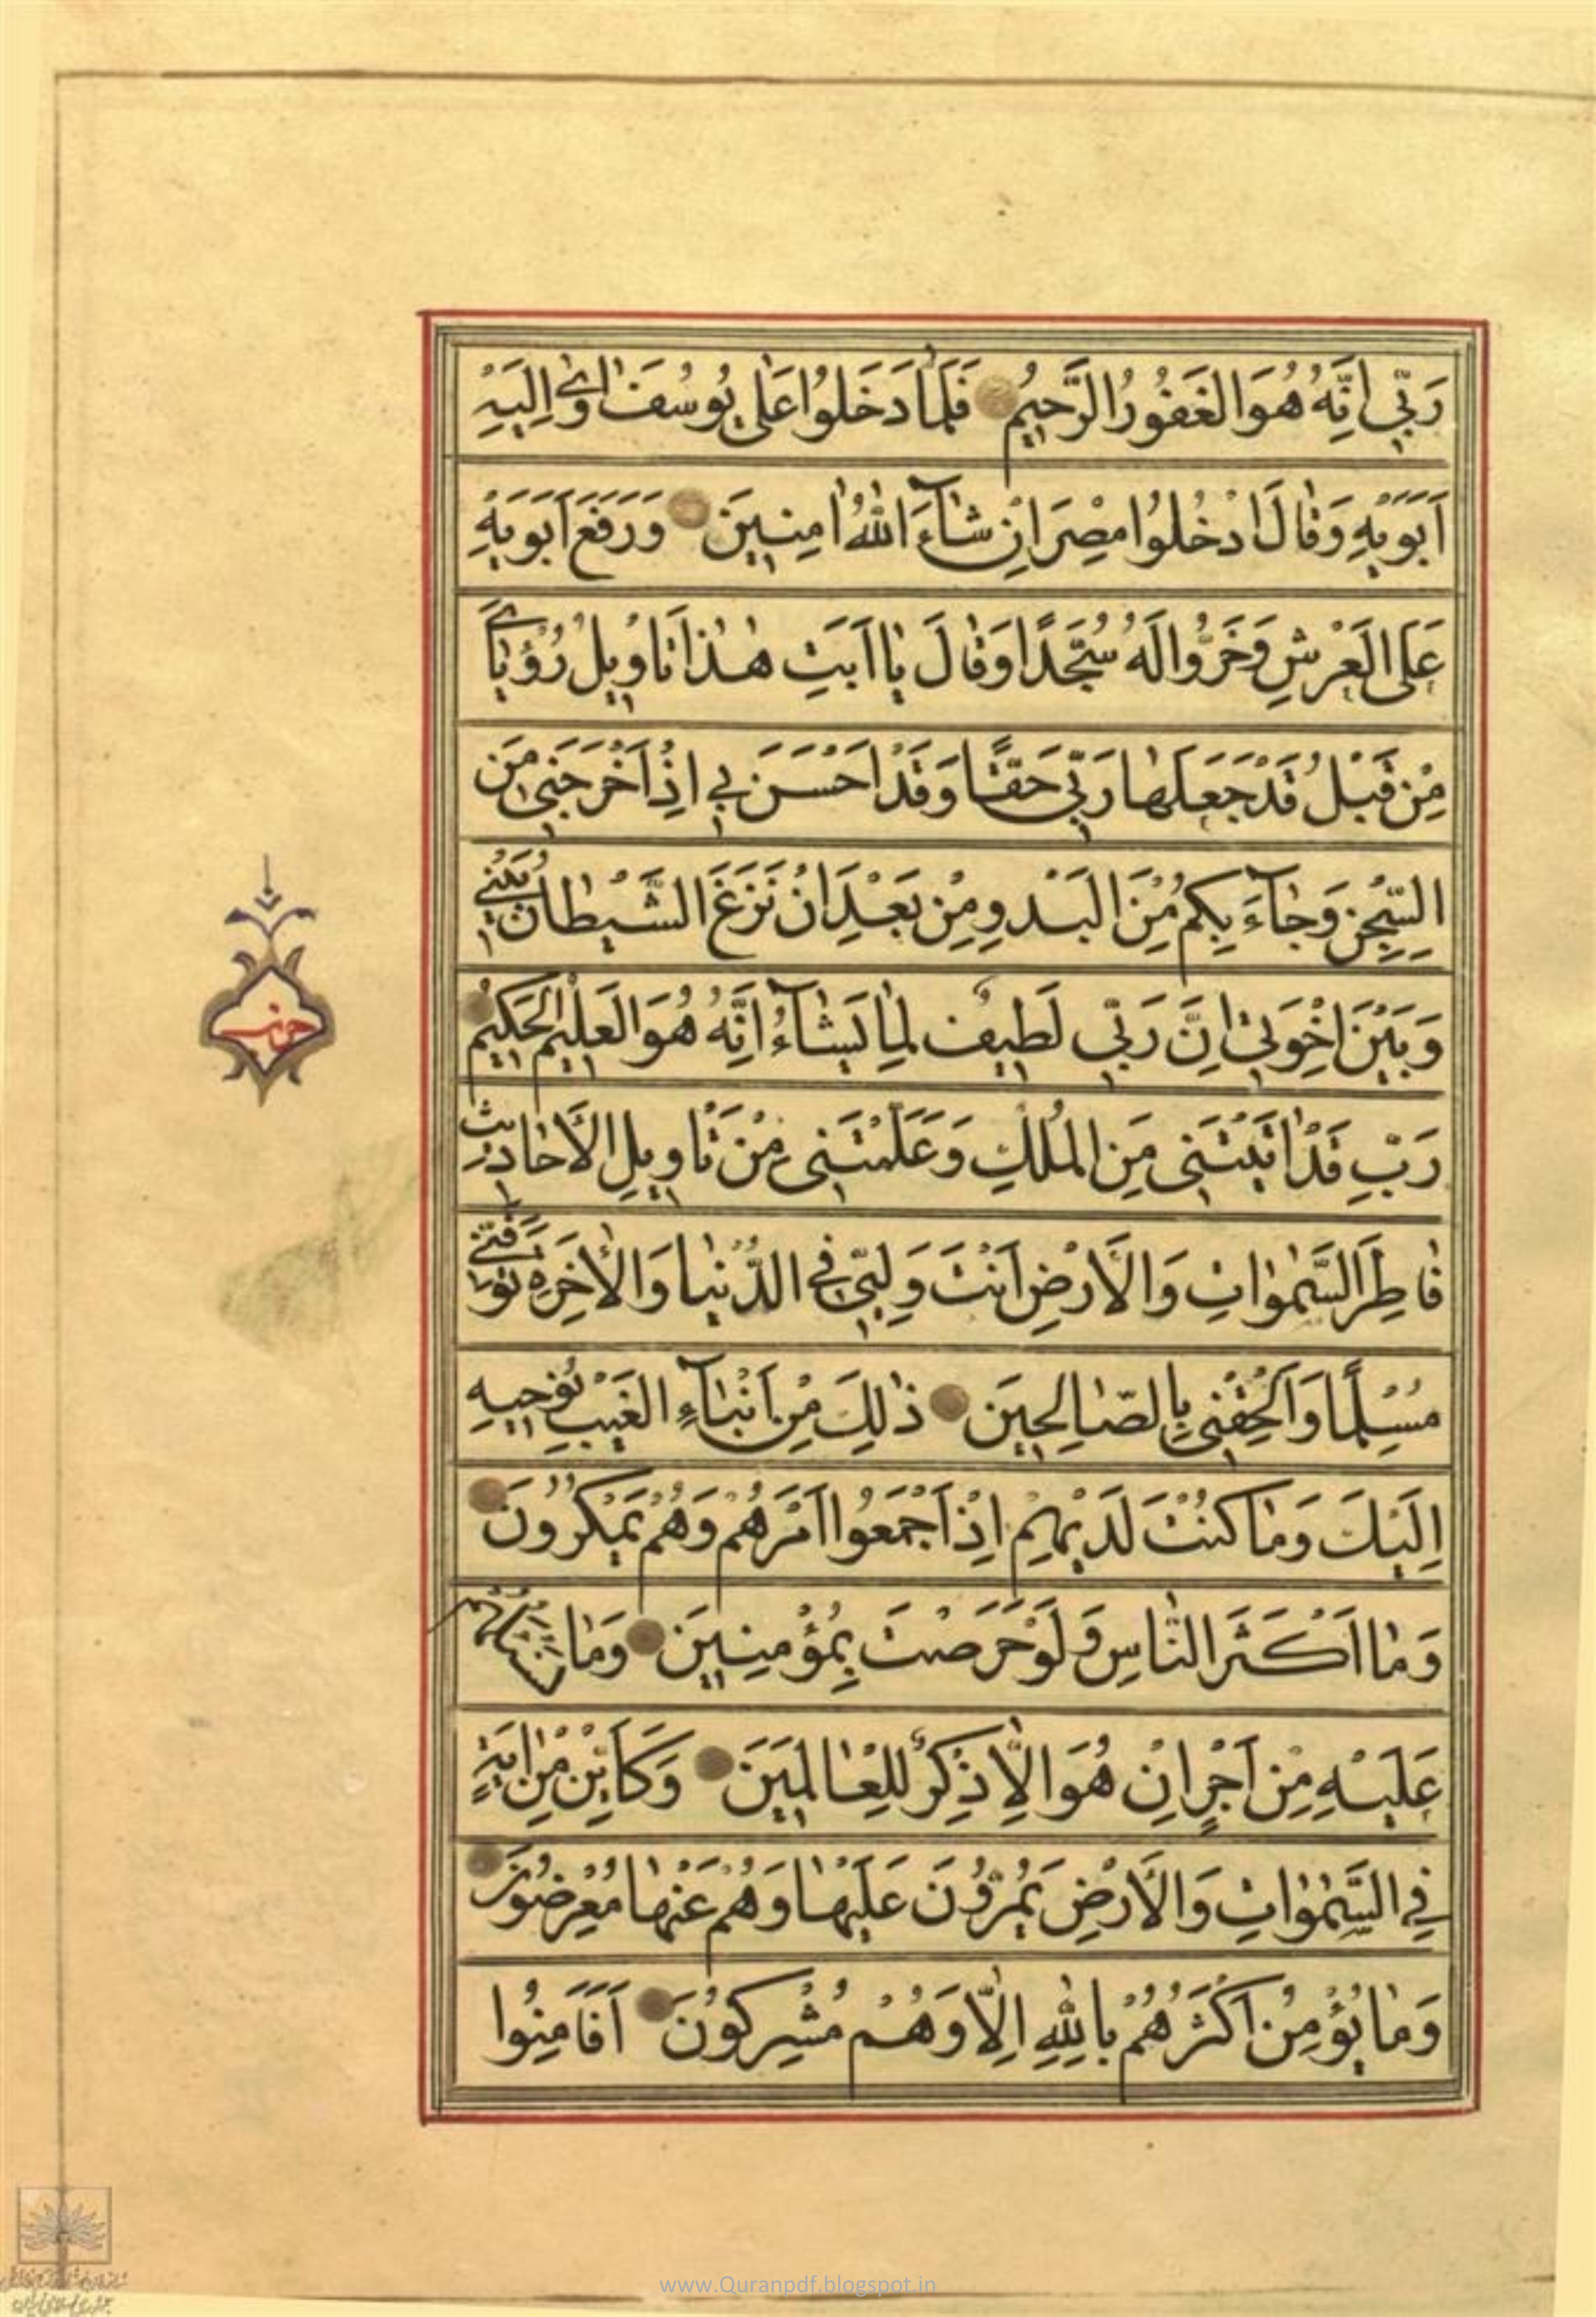 رَبّي اِنَّهُ هُوَ الغَفُورُ الرَّحيمُ فَلَمّٰا دَخَلُوا عَلىٰ يُوسُفَ اٰوىٰ اِلَيْهِ
اَبَوَيْهِ وَقٰالَ ادْخُلُوا مِصْرَ اِنْ شٰآءَ اللّٰهُ اٰمِنينَ وَرَفَعَ اَبَوَيْهِ
عَلَى العَرْشِ وَخَرُّوا لَهُ سُجَّدًا وَقٰالَ يٰا اَبَتِ هٰذٰا تَاْويلُ رُؤْيٰايَ
مِنْ قَبْلُ قَدْ جَعَلَهٰا رَبّي حَقًّا وَقَدْ اَحْسَنَ بي اِذْ اَخْرَجَني مِنَ
السِّجْنِ وَجٰآءَ بِكُمْ مِنَ البَدْوِ مِنْ بَعْدِ اَنْ نَزَغَ الشَّيْطٰانُ بَيْني
وَبَيْنَ اِخْوَتي اِنَّ رَبّي لَطيفٌ لِمٰا يَشٰآءُ اِنَّهُ هُوَ العَليمُ الحَكيمُ
رَبِّ قَدْ اٰتَيْتَني مِنَ المُلْكِ وَعَلَّمْتَني مِنْ تَاْويلِ الاَحٰاديثِ
فٰاطِرَ السَّمٰوٰاتِ وَالاَرْضِ اَنْتَ وَلِيّي فِي الدُّنْيٰا وَالاٰخِرَةِ تَوَفَّني
مُسْلِمًا وَاَلْحِقْني بِالصّٰالِحينَ ذٰلِكَ مِنْ اَنْبٰآءِ الغَيْبِ نُوحيهِ
اِلَيْكَ وَمٰا كُنْتَ لَدَيْهِمْ اِذْ اَجْمَعُوا اَمْرَهُمْ وَهُمْ يَمْكُرُونَ
وَمٰا اَكْثَرُ النّٰاسِ وَلَوْ حَرَصْتَ بِمُؤْمِنينَ وَمٰا تَسْئَلُهُمْ
عَلَيْهِ مِنْ اَجْرٍ اِنْ هُوَ اِلّٰا ذِكْرٌ لِلْعٰالَمينَ وَكَاَيِّنْ مِنْ اٰيَةٍ
فِي السَّمٰوٰاتِ وَالاَرْضِ يَمُرُّونَ عَلَيْهٰا وَهُمْ عَنْهٰا مُعْرِضُونَ
وَمٰا يُؤْمِنُ اَكْثَرُهُمْ بِاللّٰهِ اِلّٰا وَهُمْ مُشْرِكُونَ اَفَاَمِنُوا
حزب
www.Quranpdf.blogspot.in